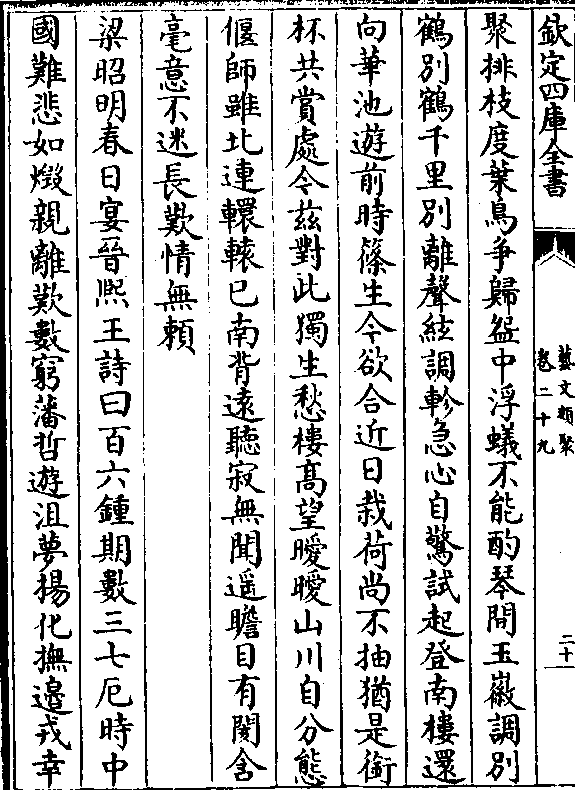 欽定四庫全書
藝文類聚
卷二十九
二十
聚排枝度葉鳥争歸盌中浮蟻不能酌琴間玉徽調別
鶴別鶴千里別離聲絃調軫急心自驚試起登南樓還
向華池遊前時篠生今欲合近日栽荷尚不抽猶是銜
杯共賞處今兹對此獨生愁樓髙望曖曖山川自分態
偃師雖北連轘轅已南背遠聽寂無聞遥瞻目有閡含
毫意不迷長歎情無頼
梁昭明春日宴晉熈王詩曰百六鍾期數三七厄時中
國難悲如燬親離歎數窮藩哲遊沮夢揚化撫邉戎幸